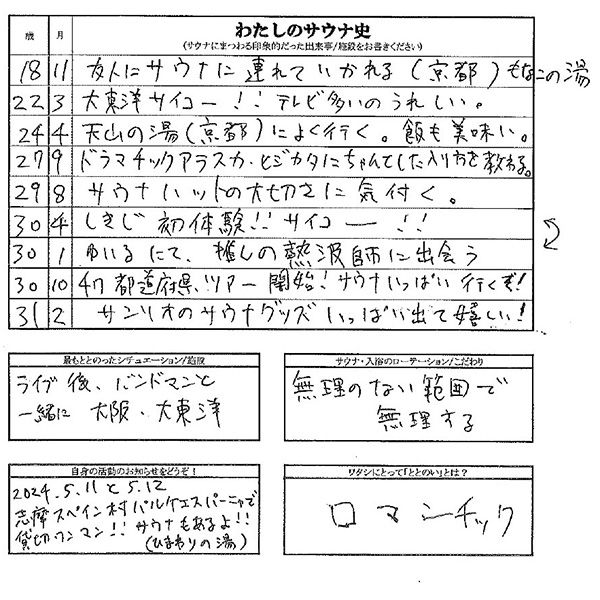 歳 月 わたしのサウナ史
(サウナにまつわる印象的だった出来事/施設をお書きください)
18 11 友人にサウナに連れていかれる(京都)もなこの湯
22 3 大東洋サイコー!!テレビ多いのうれしい。
24 4 天山の湯(京都)によく行く。飯も美味い。
27 9 ドラマチックアラスカ・ヒジカタにちゃんとした入り方を教わる。
29 8 サウナハットの大切さに気付く。
30 4 しきじ初体験!!サイコー!!
30 1 ゆいるにて、推しの熱波師に出会う
30 10 47都道府県ツアー開始!サウナいっぱい行くぞ!
31 2 サンリオのサウナグッズいっぱい出て嬉しい!
最もととのったシチュエーション/施設
ライブ後、バンドマンと
一緒に 大阪・大東洋
サウナ・入浴のローテーション/こだわり
無理のない範囲で
無理する
自身の活動のお知らせをどうぞ!
2024.5.11と5.12
志摩スペイン村パルケエスパーニャで
貸切ワンマン!!サウナもあるよ!!
(ひまわりの湯)
ワタシにとって「ととのい」とは?
ロマンチック